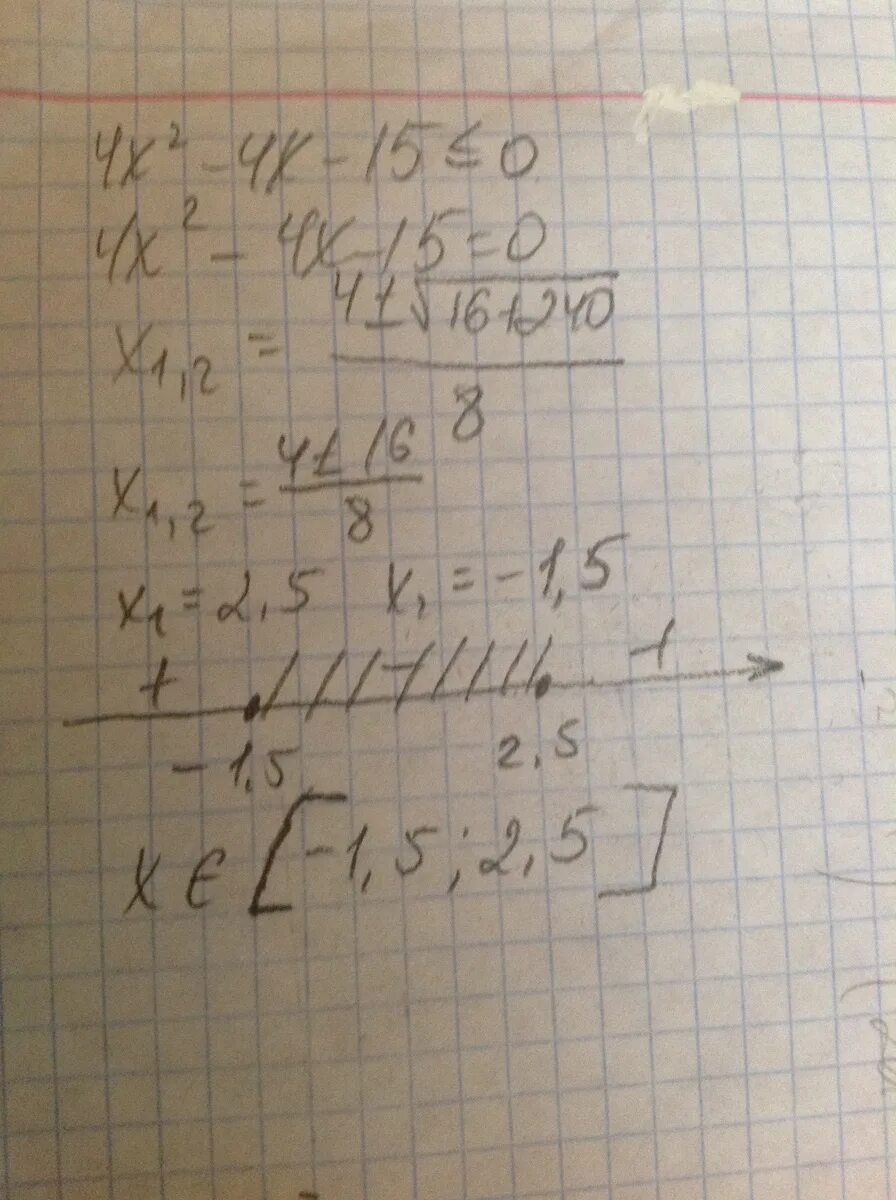 4x² - 4x - 15 ≤ 0
4x² - 4x - 15 = 0
x₁,₂ = (4 ± √(16 + 240)) / 8
x₁,₂ = (4 ± 16) / 8
x₁ = 2,5 x₁ = -1,5
+ - +
-1,5 2,5
x ∈ [-1,5; 2,5]